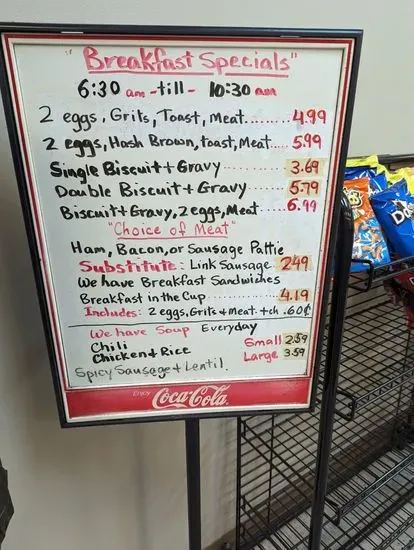 "Breakfast Specials"
6:30 am -till- 10:30 am
2 eggs, Grits, Toast, Meat.....4.99
2 eggs, Hash Brown, toast, Meat....5.99
Single Biscuit + Gravy..........3.69
Double Biscuit + Gravy........5.79
Biscuit + Gravy, 2 eggs, Meat....6.99
"Choice of Meat"
Ham, Bacon, or Sausage Pattie
Substitute: Link Sausage 2.49
We have Breakfast Sandwiches
Breakfast in the Cup..............4.19
Includes: 2 eggs, Grits & Meat. + ch .60¢
We have Soup Everyday
Chili Small 2.59
Chicken & Rice Large 3.59
Spicy Sausage & Lentil.
Enjoy Coca-Cola